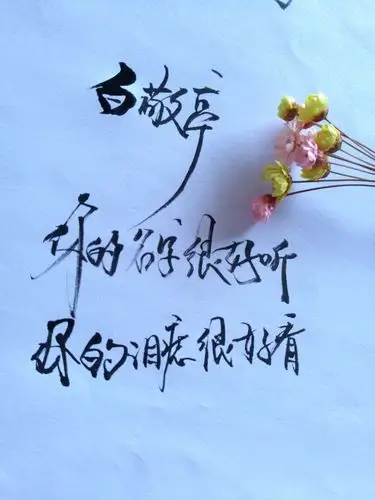 白敬亭
你的名字很好听
你的泪痣很好看